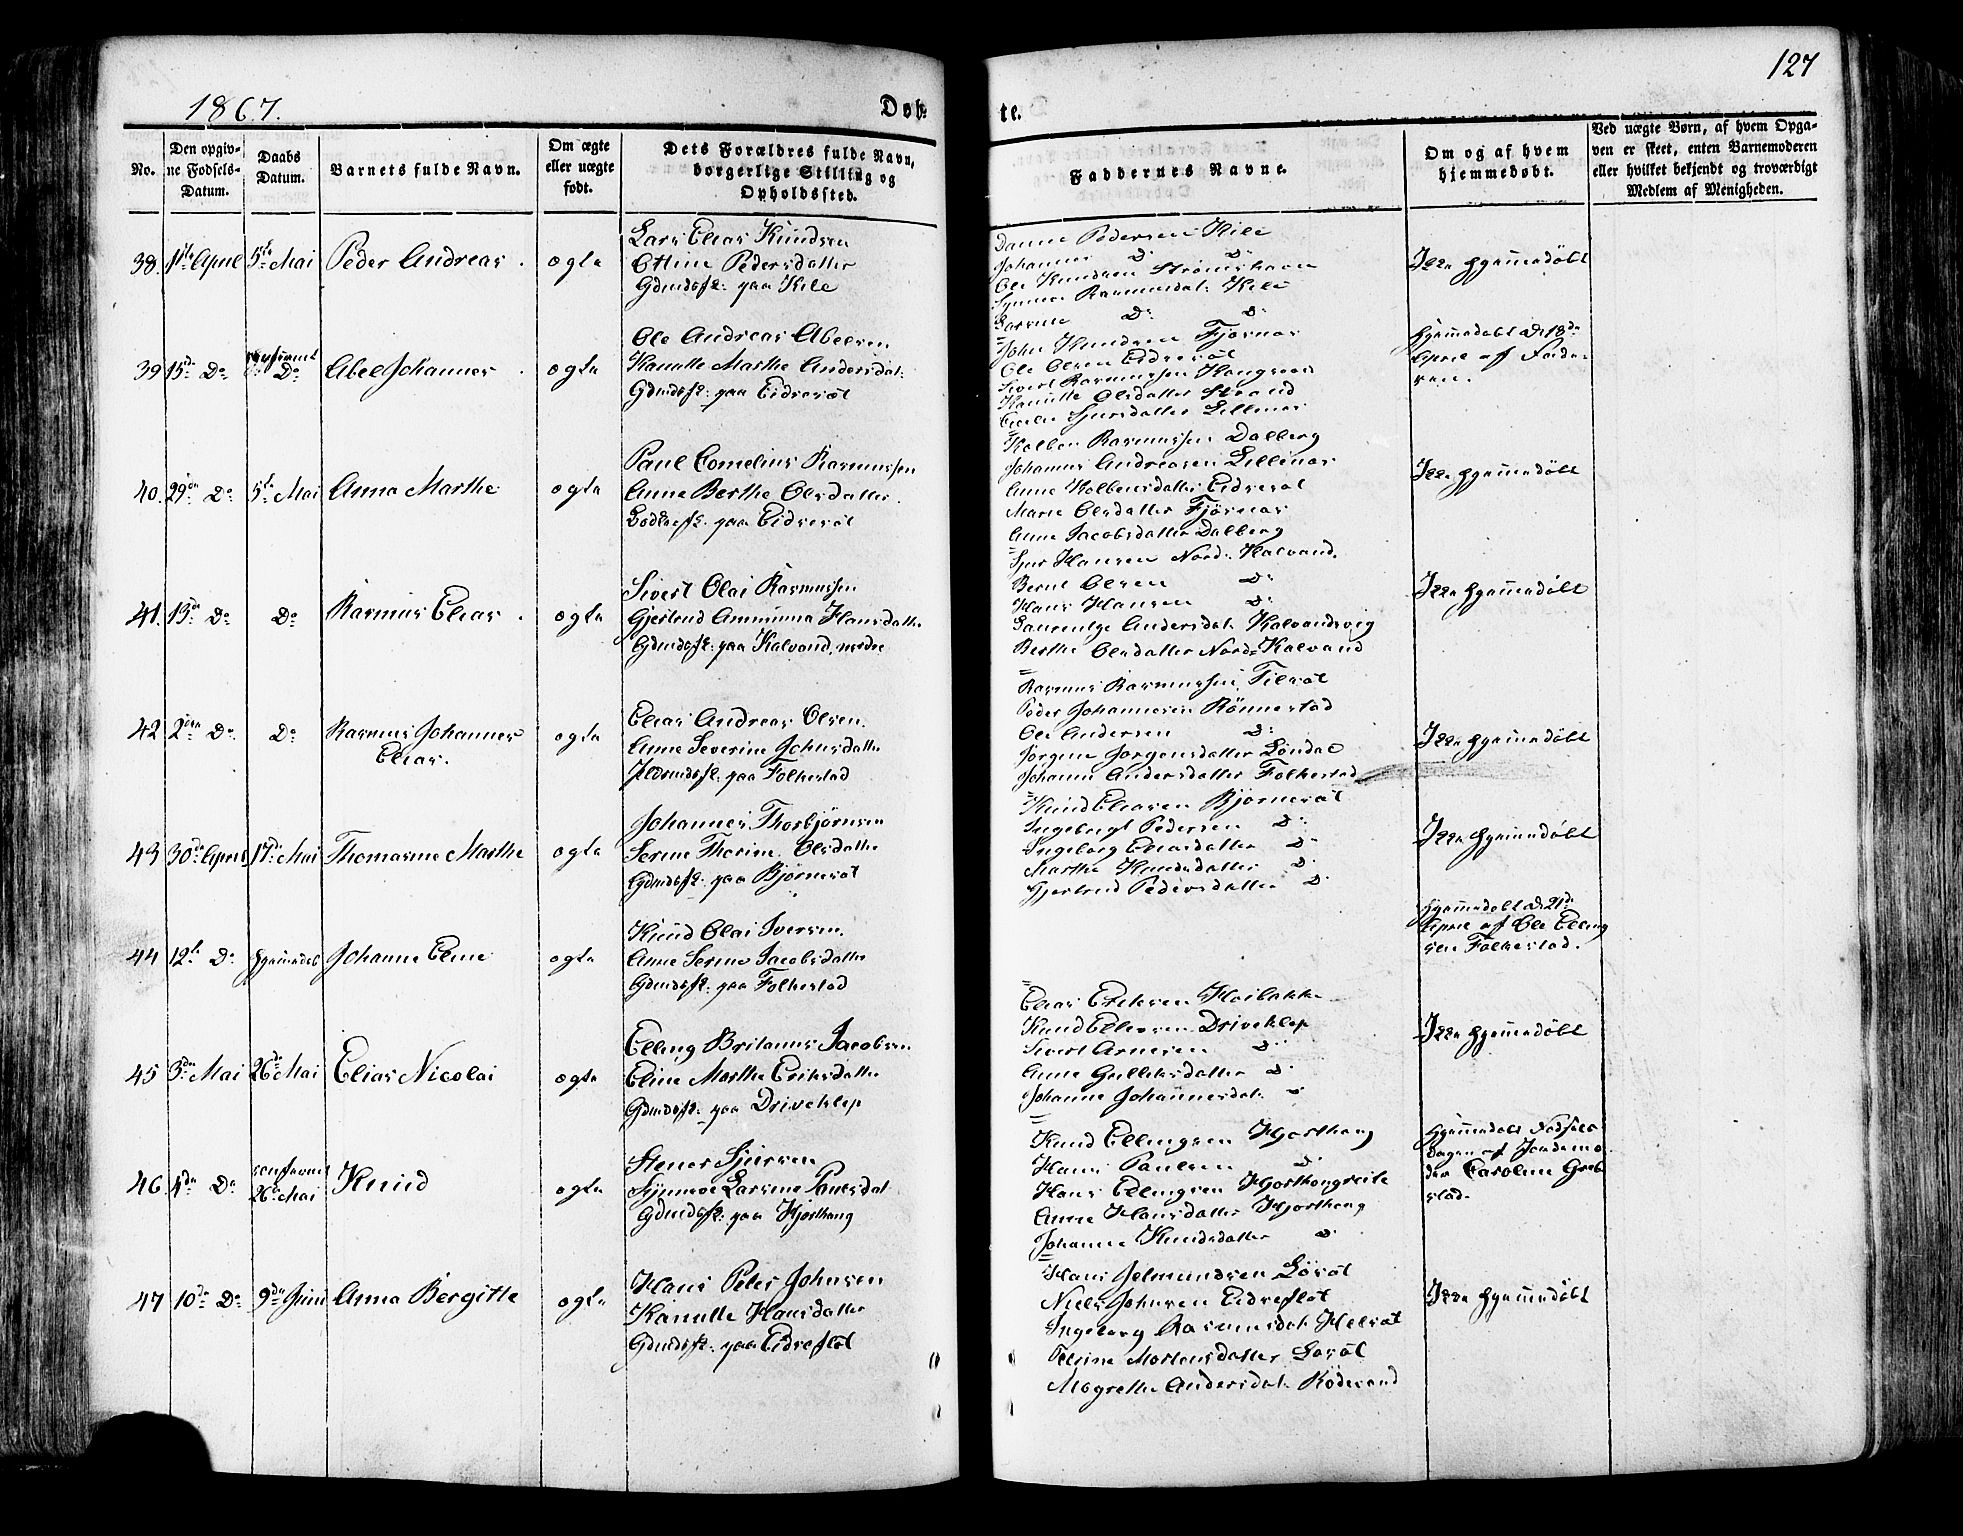 127
1867.
Døb-
te.
No.
Den opgiv-
ne Fødsels-
Datum.
Daabs
Datum.
Barnets fulde Navn.
Om ægte
eller uægte
født.
Dets Forældres fulde Navn,
borgerlige Stilling og
Opholdssted.
Faddernes Navne.
Om og af hvem
hjemmedøbt.
Ved uægte Børn, af hvem Opga-
ven er skeet, enten Barnemoderen
eller hvilket bekjendt og troværdigt
Medlem af Menigheden.
38. April 5te Mai Peder Andreas. ægte
Lars Elias Knudsen
Oline Pedersdatter
Gdmdsfk: paa Kile
Pedersen Kile
Johannes D: D:
Ole Knudsen Strømshavn
Rasmusdat: Kile
D: D:
Ikke hjemmedøbt
39 15de Do Do Abel Johannes. ægte
Ole Andreas Abelsen
Marthe Andersdat:
Gdmdsfk: paa Eidsesæt
John Knudsen Fjørnes
Ole Olsen Eidsesæt
Sivert Rasmussen
Olsdatter Strand
Sjursdatter Lillenes
hjemmedøbt d: 18de
April af Fade-
ren.
40. 29de Do 5te Mai Anna Marthe ægte
Paul Cornelius Rasmussen
Anne Berthe Olsdatter
paa Eidsesæt
Kolben Rasmussen Dalberg
Johannes Andreasen Lillenes
Anne Kolbensdatter Eidsesæt
Marie Olsdatter Fjørnes
Anne Jacobsdatter Dalberg
Ikke hjemmedøbt
41. 13de Do Do Rasmus Elias. ægte
Sivert Olai Rasmussen
Gjertrud Hansdatter
Gdmdsfk: paa Kalvand, nordre
Sjur Hansen Nord: Kalvand.
Bernt Olsen D:
Hans Hansen D:
Andersdat: Kalvandsvig
Berthe Olsdatter Nord: Kalvand
Ikke hjemmedøbt
42 2den Do Do Rasmus Johannes
Elias. ægte
Elias Andreas Olsen.
Anne Severine Johnsdatter
paa Folkestad
Rasmus Rasmussen
Peder Johannesen Rønnestad
Ole Andersen D:
Jørgine Jørgensdatter Løndal
Johanne Andersdatter Folkestad
Ikke hjemmedøbt
43 30de April 17de Mai Thomasine Marthe ægte
Johannes Thorbjørnsen
Serine Thorine Olsdatter
Gdmdsfk: paa Bjørnesæt
Knud Eliasen Bjørnesæt
Ingebrigt Pedersen D:
Ingeborg Eliasdatter D:
Marthe Knudsdatter D:
Gjertrud Pedersdatter D:
Ikke hjemmedøbt
44 12te Do hjemmedøb Johanne Eline ægte
Knud Olai Iversen.
Anne Serine Jacobsdatter
Gdmdsfk: paa Folkestad
hjemmedøbt d: 21de
April af Ole Elling
sen Folkestad.
45 3die Mai 26de Mai Elias Nicolai ægte
Elling Jacobsen
Eline Marthe Eriksdatter
Gdmdsfk: paa Driveklep
Elias Eriksen
Knud Eliasen Driveklep
Sivert Arnesen D:
Anne D:
Johanne Johannesdat: D:
Ikke hjemmedøbt
46. 4de Do 26de Mai Knud ægte
Stener Sjursen
Synneve Larsine Paulsdat
Gdmdsfk: paa Hjorthoug
Knud Ellingsen Hjorthoug
Hans Paulsen D:
Hans Ellingsen
Anne Hansdatter Hjorthoug
Johanne Knudsdatter D:
hjemmedøbt Fødsels-
dagen af Jordemo-
der Caroline
47 10de Do 9de Juni Anna Bergitte ægte
Hans Peter Johnsen
Hansdatter
Gdmdsfk: paa Eidseflot
Hans
Niels Johnsen Eidseflot
Ingeborg Rasmusdat:
Petrine Mortensdatter
Andersdat:
Ikke hjemmedøbt